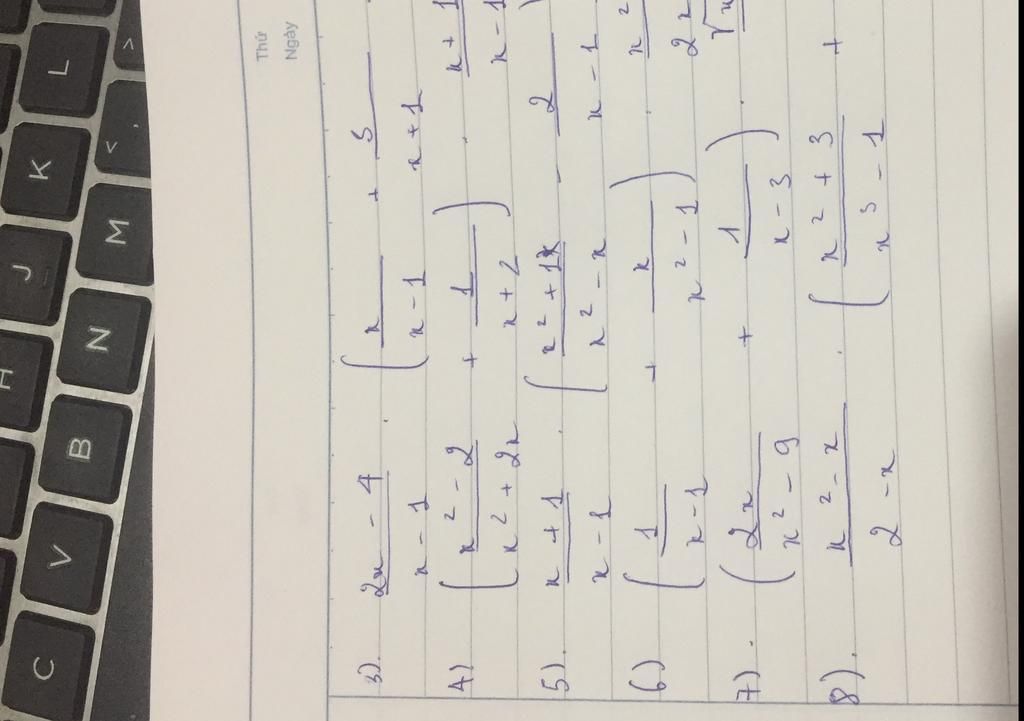 Thứ
Ngày
3). 2x - 4 / x - 1 . ( x / x - 1 + 5 / x + 1
4) ( x² - 2 / x² + 2x + 1 / x + 2 ) . x + 1 / x - 1
5). x + 1 / x - 1 . ( x² + 1 / x² - x - 2 / x - 1 )
6) ( 1 / x - 1 + x / x² - 1 ) . x² / 2x
7). ( 2x / x² - 9 + 1 / x - 3 ) .
8). x² - x / 2 - x . ( x² + 3 / x³ - 1 +
C
V
B
N
M
<
,
>
H
J
K
L